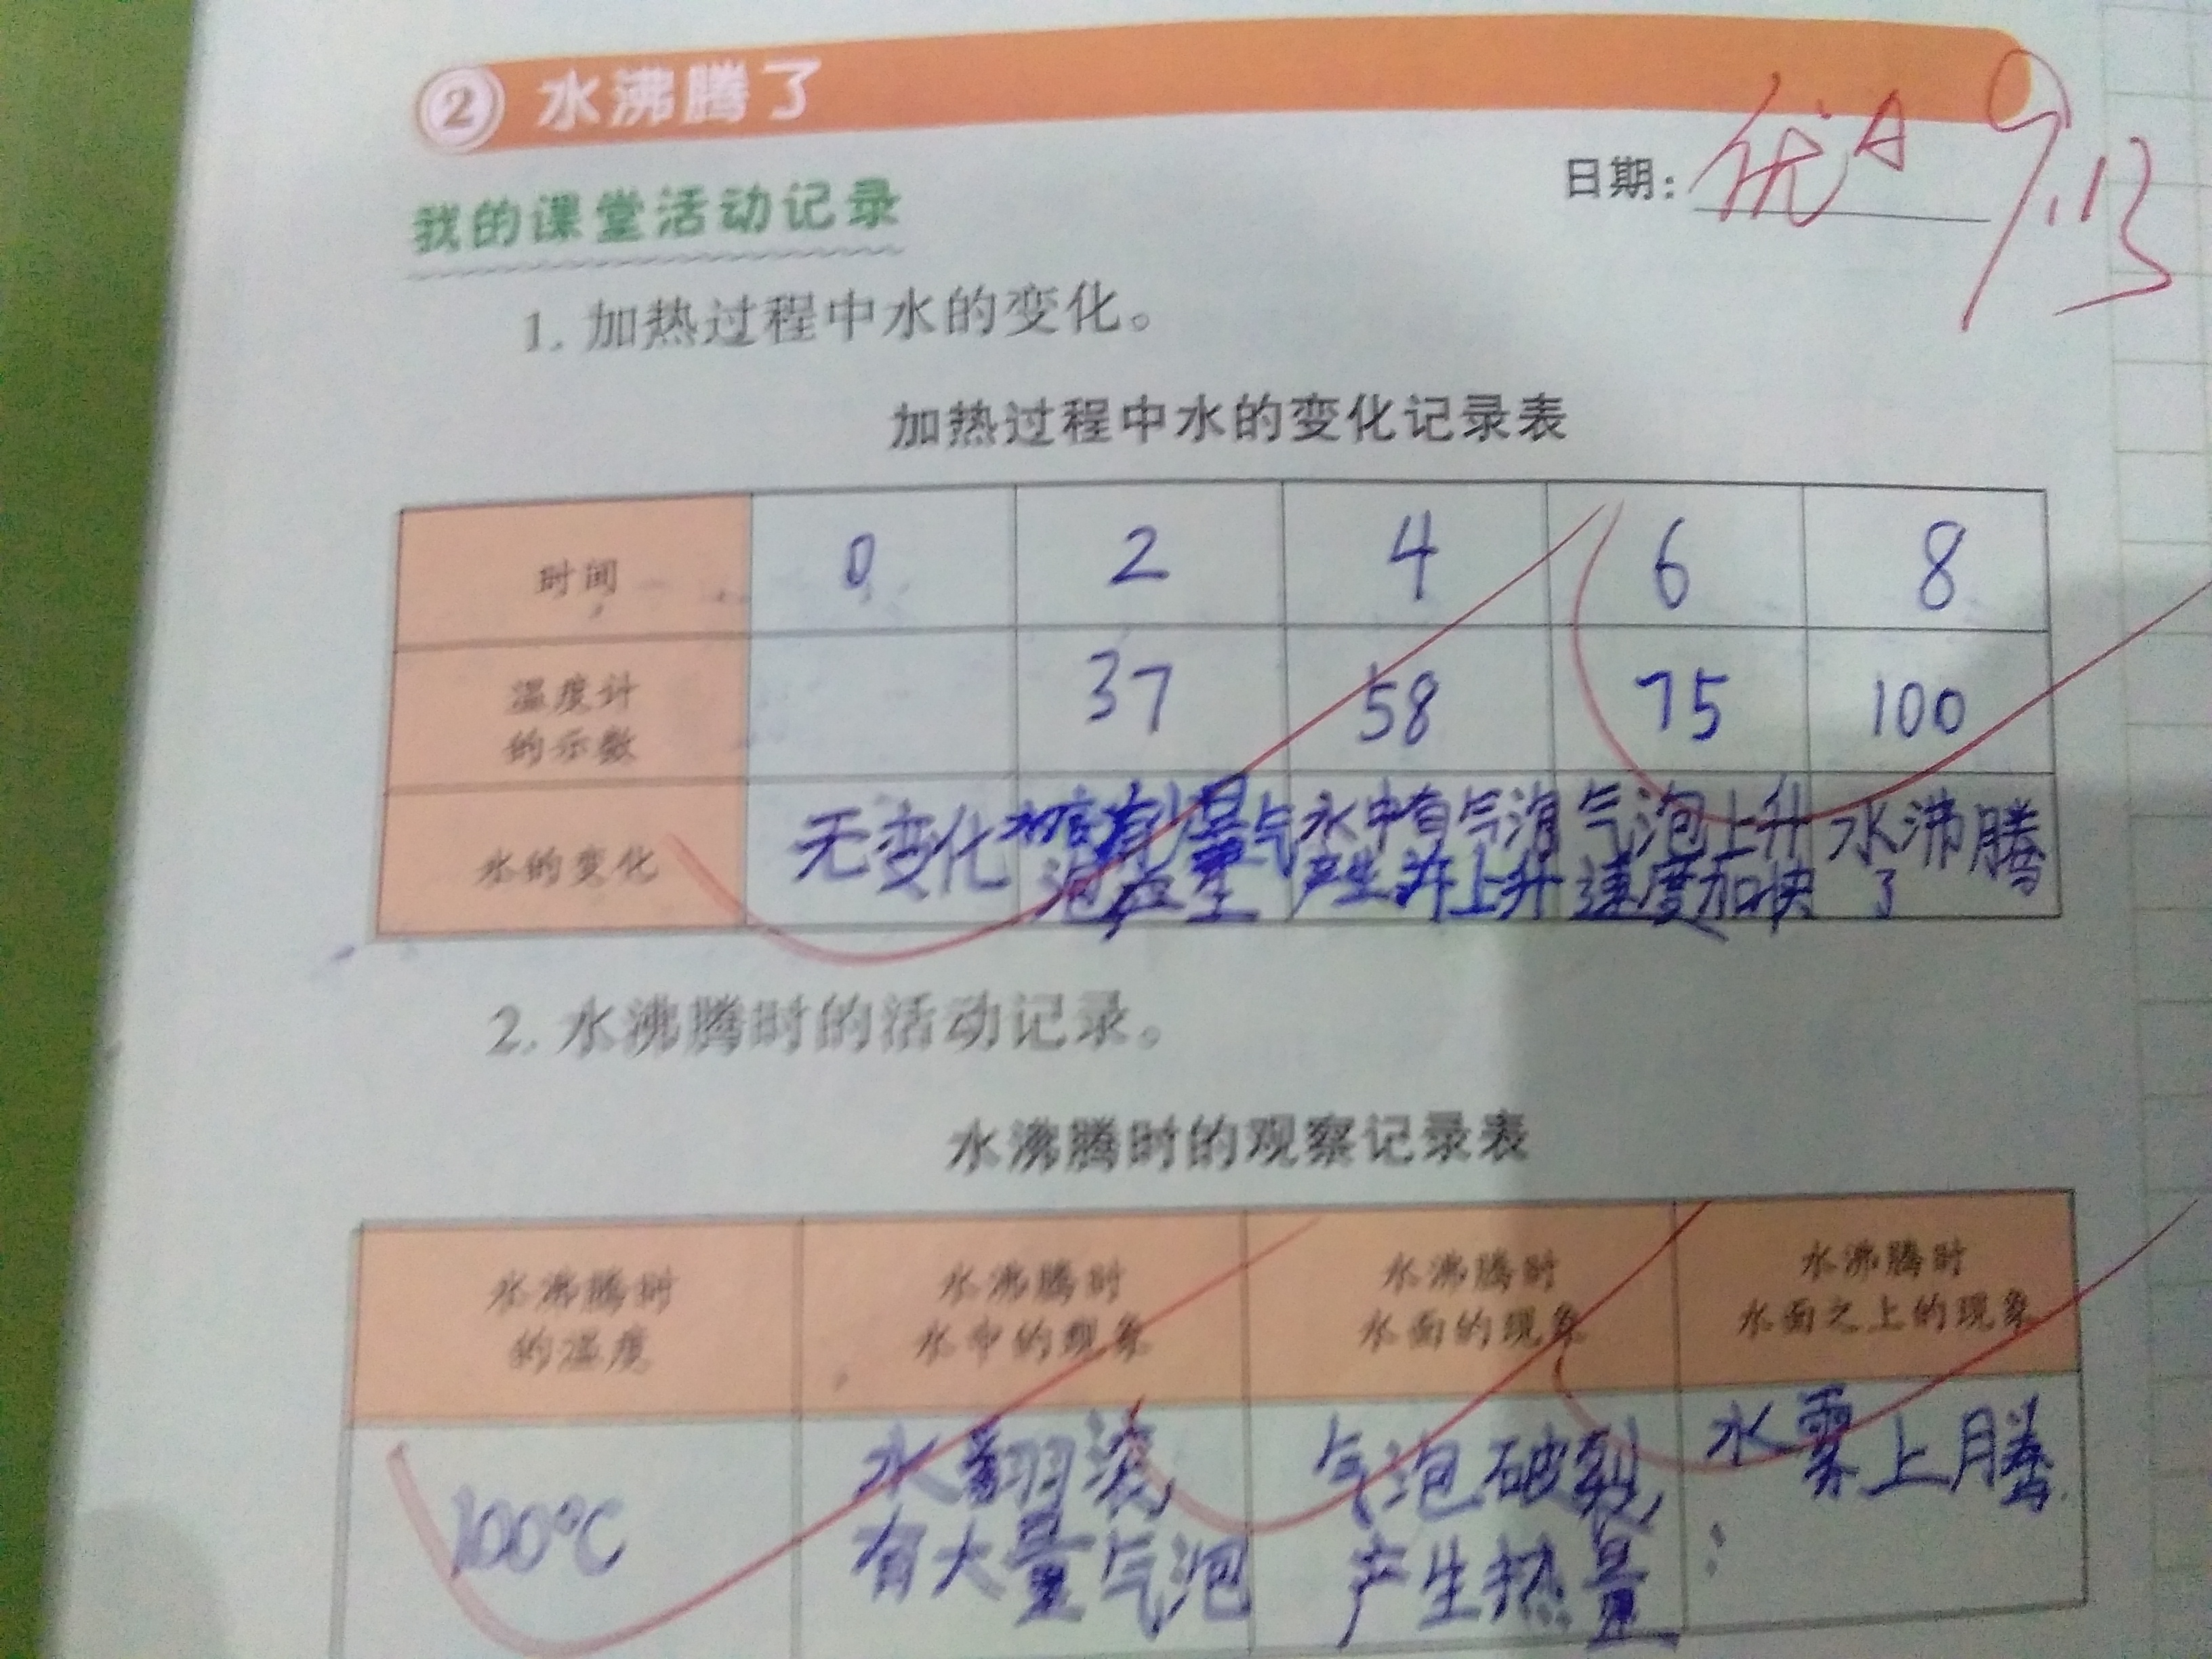 ② 水沸腾了
日期: 优A 9.13
我的课堂活动记录
1. 加热过程中水的变化。
加热过程中水的变化记录表
时间 0 2 4 6 8
温度计的示数 37 58 75 100
水的变化 无变化 有少量气泡 水中有气泡产生并上升 气泡上升速度加快 水沸腾了
2. 水沸腾时的活动记录。
水沸腾时的观察记录表
水沸腾时 水沸腾时 水沸腾时 水沸腾时
的温度 水中的现象 水面的现象 水面之上的现象
100℃ 水翻滚 气泡破裂 水雾上腾
有大量气泡 产生热量